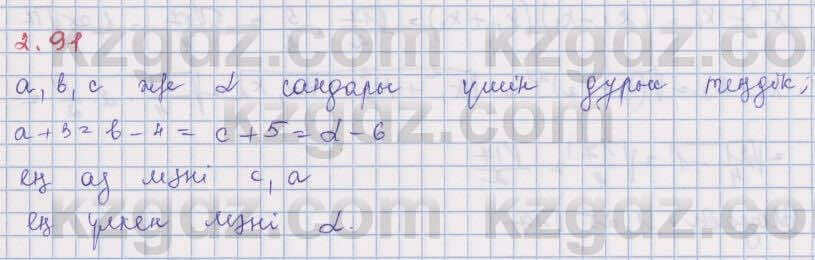 2.91
a, b, c және d сандары үшін дұрыс теңдік;
a + 3 = b - 4 = c + 5 = d - 6
ең аз мәні c, a
ең үлкен мәні d.
kzgdz.com kzgdz.com
kzgdz.com kzgdz.com